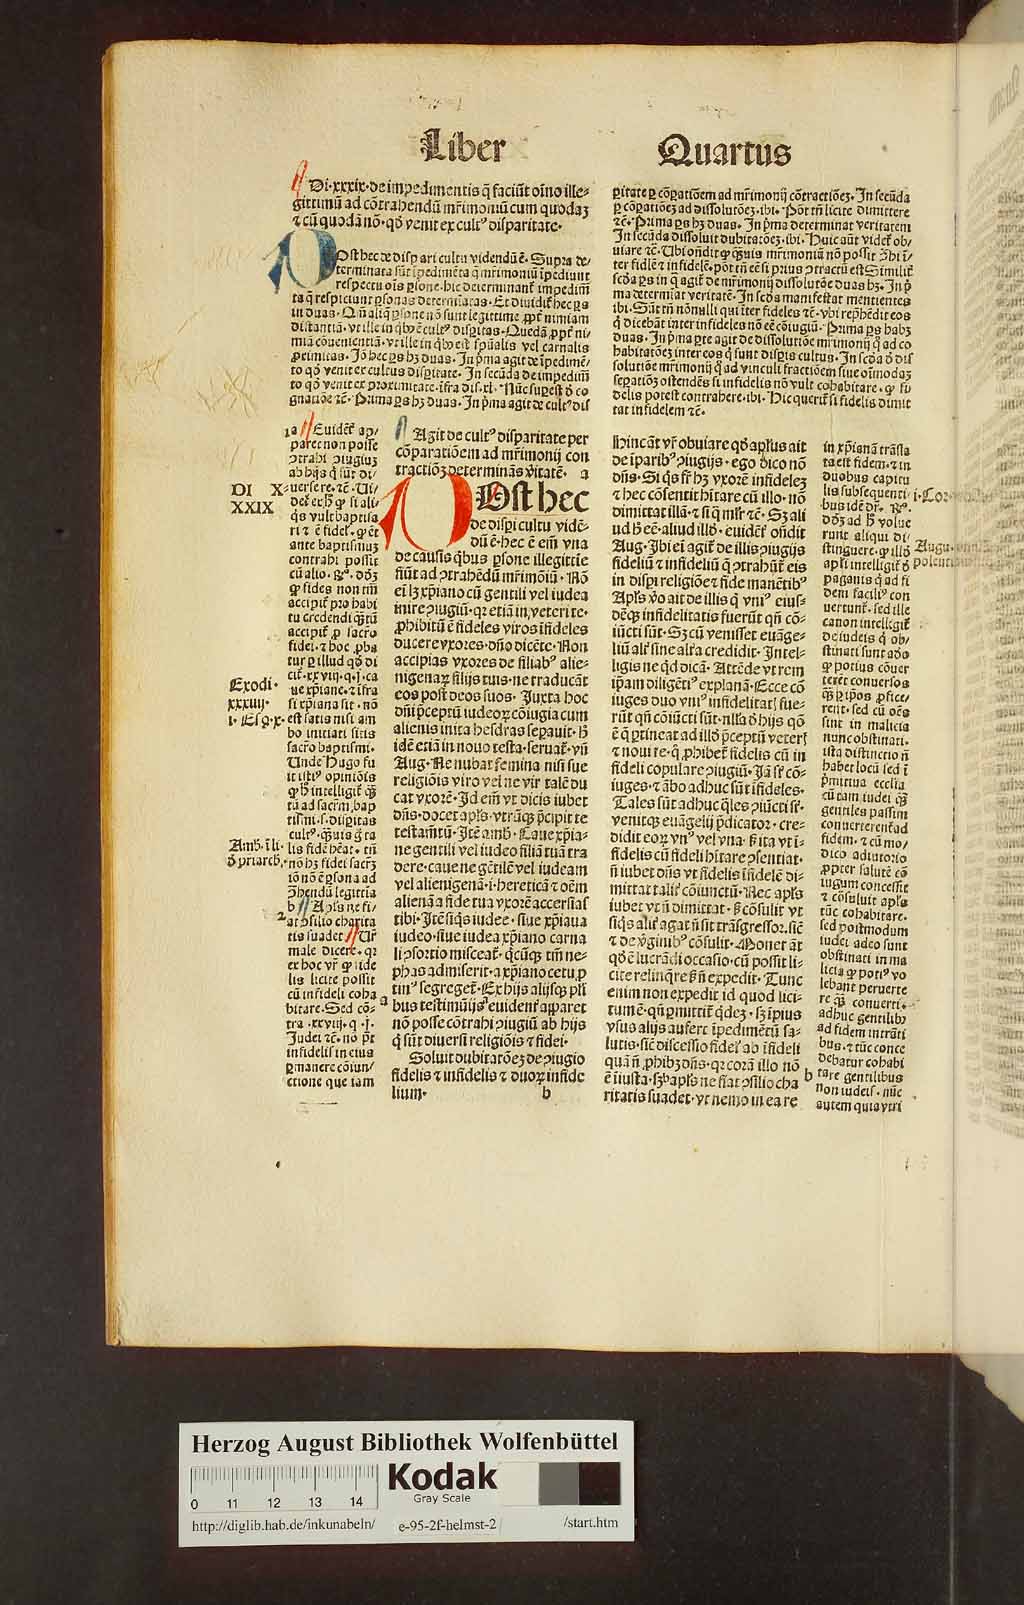 Liber
Quartus
Di·xxxix·de impedimentis q̄ faciūt oīno ille⸗
gittimū ad cōtrahendū mr̄imoniū cum quodaʒ
⁊ cū quodā nō· qd̓ venit ex cultꝰ disparitate·
Ost hec de dispari cultu videndū ē· Supra de⸗
terminata sūt īpedimēta q̄ mr̄imoniū īpediunt
respectu oīs ꝑsone· hic determinant̄ impedim̄
ta q̄ respiciunt ꝑsonas determiatas· Et diuidit̄ hec ꝑs
in duas· Qm̄ aliq̄ ꝑsone nō sunt legittime ꝓpt̄ nimiam
distantiā· vt ille in qͥbꝰ ē cultꝰ disꝑitas· Quedā ꝓpt̄ ni⸗
miā cōuenientiā· vt ille in qͥbꝰ est spūalis vel carnalis
ꝓximitas· Jō hec ꝑs hʒ duas· In pͥma agit de īpedimē⸗
to qd̓ venit ex cultus disꝑitate· In secūda de impedim̄
to qd̓ venit ex proximitate· īfra dis·xl· Nūc suꝑest d̓ co
gnatiōe ⁊c̄· Prima ꝑs hʒ duas· In pͥma agit de cultꝰ dis
ꝑitate ꝑ cōꝑatiōem ad mr̄imonij cōtractiōeʒ· In secūda
ꝑ cōꝑatiōeʒ ad dissolutōeʒ·ibi· Pōt tn̄ licite dimittere
⁊c̄· Prima ꝑs hʒ duas· In pͥma determinat veritatem
In secūda dissoluit dubitatōeʒ·ibi· Huic aūt videt̄ ob⸗
uiare ⁊c̄· Ubi on̄dit ꝙ qͣuis mr̄imoniū nō possit ꝯhi ī⸗
ter fidlē ⁊ infidelē· pōt tn̄ eē si prius ꝯtractū est Similit̄
scd̓a ꝑs in q̄ agit̄ de mr̄imonij dissolutōe duas hʒ· In pͥ
ma determīat veritatē· In scd̓a manifestat mentientes
ibi· Sūt tn̄ nōnulli qui īter fideles ⁊c̄· vbi rep̄hēdit eos
q̄ dicebāt inter infideles nō eē cōiugiū· Prima ꝑs habʒ
duas· In pͥma ꝑte agit de dissolutiōe mr̄imonij q̄ ad co
habitatōeʒ inter eos q̄ sunt disꝑis cultus· In scd̓a d̓ dis
solutōe mr̄imonij q̄ ad vinculi fractiōem siue oīmodaʒ
seꝑatiōʒ ostendēs si infidelis nō vult cohabitare· ꝙ fi
delis potest contrahere·ibi· Hic querit̄ si fidelis dimit
tat infidelem ⁊c̄·
1a Euidēt̄ ap⸗
paret non posse
ꝯtrahi ꝯiugiuʒ
ab hijs q̄ sūt di⸗
uerse re· ⁊c̄· Ui⸗
det̄ ex h̓ ꝙ si ali⸗
qͥs vult baptisa
ri ⁊ ē fidel̓· ꝙ ēt
ante baptismuʒ
contrahi possit
cū alio· Rꝰ· dd̓ʒ
ꝙ fides non tm̄
accipit̄ pro habi
tu credendi qͣꝫtū
accipit̄ ꝑ sacro
fidei· ⁊ hoc ꝓba
tur ꝑ illud qd̓ di
cit̄· xxviij·q·j·ca
ue xp̄iane·⁊ īfra
si xp̄iana sit· nō
est satis nisi am
bo initiati sitis
sacrō baptismi·
Unde Hugo fu
it istiꝰ opiniōis
ꝙ h̓ intelligit̄ qͣꝫ
tū ad sacrm̄ bap
tismi·s·disꝑitas
cultꝰ· qͣuis gͣta
lis fidē hēat· tn̄
nō hʒ fidei sacr̄ʒ
iō nō ē ꝑsona ad
ꝯhendū legittīa
b Apl̓s ne fi⸗
at ꝯsilio charita
tis suadet Ur̄
male dicere· qꝛ
ex hoc vr̄ ꝙ fide
lis licite possit
cū infideli coha
bitare· Sed cō⸗
tra·xxviij·q·j·
Judei ⁊c̄· nō p̄t
infidelis in eius
ꝑmanere cōiun⸗
ctione que iam
DI X⸗
XXIX
Exodi·
xxxiij·
i·Esd̓·x·
Amb·ī li·
d̓ p̄iarch·
2
Agit de cultꝰ disparitate per
cōparatiōem ad mr̄imonij con
tractiōʒ determinās v̓itatē· a
Ost hec
de disꝑi cultu vidē⸗
dū ē· hec ē em̄ vna
de causis qͥbus ꝑsone illegittīe
fiūt ad ꝯtrahēdū mr̄imōiū· Nō
ei̓ lʒ xp̄iano cū gentili vel iudea
inire ꝯiugiū· qꝛ etiā in veteri te·
ꝓhibitū ē fideles viros īfideles
ducere vxores· dn̄o dicēte· Non
accipias vxores de filiabꝰ alie⸗
nigenaꝝ filijs tuis·ne traducāt
eos post deos suos· Juxta hoc
dn̄i p̄ceptū iudeoꝝ cōiugia cum
alienis inita hesdras seꝑauit· H̓
idē etiā in nouo testa·seruat̄· vn̄
Aug· Ne nubat femina nisi sue
religiōis viro vel ne vir talē du
cat vxorē· Id em̄ vt dicis iubet
dn̄s·docet apl̓s· vtrūqꝫ p̄cipit te
testam̄tū· Itē amb· Caue xp̄ia⸗
ne gentili vel iudeo filiā tuā tra
dere·caue ne gētilē vel iudeam
vel alienigenā·i·hereticā ⁊ oēm
alienā a fide tua vxorē accersias
tibi· Itē si qͥs iudee·siue xp̄iana
iudeo·siue iudea xp̄iano carna
li ꝯsortio misceat̄· qͥcūqꝫ tm̄ ne⸗
phas admiserit·a xp̄iano cetu ꝓ
tinꝰ segreget̄· Ex hijs alijsqꝫ pl̓i
bus testimōijs euident̄ apparet
nō posse cōtrahi ꝯiugiū ab hijs
q̄ sūt diuersi religiōis ⁊ fidei·
Soluit dubitatōeʒ de ꝯiugio
fidelis ⁊ infidelis ⁊ duoꝝ infide
lium· b
Hinc āt vr̄ obuiare qd̓ apl̓us ait
de īparibꝰ ꝯiugijs· ego dico nō
dn̄s· Si qͥs fr̄ hʒ vxorē infideleʒ
⁊ hec cōsentit hītare cū illo· nō
dimittat illā·⁊ si q̄ ml̓r ⁊c̄· Sʒ ali
ud h̓ eē· aliud illd̓· euidēt̄ on̄dit
Aug· Ibi ei̓ agit̄ de illis ꝯiugijs
fideliū ⁊ infideliū q̄ ꝯtrahūt̄ eis
in disꝑi religiōe ⁊ fide manētibꝰ
Apl̓s v̓o ait de illis q̄ vniꝰ eius⸗
dēqꝫ infidelitatis fuerūt qn̄ cō⸗
iūcti sūt· Sʒ cū venisset euāge⸗
liū alt̄ sine alt̄o credidit· Intel⸗
ligis ne qd̓ dicā· Attēde vt rem
ip̄am diligētiꝰ explanā· Ecce cō
iuges duo vniꝰ infidelitat̄ fue⸗
rūt qn̄ cōiūcti sūt· nll̓a d̓ hijs qō
ē q̄ ꝑtineat ad illd̓ p̄ceptū veteꝝ
⁊ noui te·q̄ ꝓhibet̄ fidelis cū in
fideli copulare ꝯiugiū· Jā sūt cō⸗
iuges·⁊ ābo adhuc sūt īfideles·
Tales sūt adhuc qͣles ꝯiūcti sūt·
venitqꝫ euāgelij p̄dicator· cre⸗
didit eoꝝ vnꝰ vel vna· h̓ ita vt ī⸗
fidelis cū fideli hītare ꝯsentiat·
n̄ iubet dn̄s vt fidelis īfidelē di⸗
mittat talit̄ cōiunctū· Nec apl̓s
iubet vt n̄ dimittat· h̓ cōsulit vt
si qͥs alit̄ agat n̄ sit trāsgressor·sic̄
⁊ de v̓ginibꝰ cōsulit· Monet āt
qd̓ ē lucrādi occasio· cū possit li⸗
cite relinqͥre h̓ n̄ expedit· Tunc
enim non expedit id quod lici⸗
tum ē· qn̄ ꝑmittit̄ qͥdeʒ·sʒ ip̄ius
vsus alijs aufert īpedimētū sa⸗
lutis·sic̄ discessio fidel̓ ab īfideli
quā n̄ ꝓhibʒ dn̄s·qꝛ corā illo nō
ē iīusta·sʒ h̓ apl̓s ne fiat ꝯsilio cha
ritatis suadet· vt nemo in ea re
in xp̄ianā trāsla
ta est fidem·⁊ in
duobus capitu
lis subsequenti
bus idē dr̄· Rꝰ·
dd̓ʒ ad h̓ volue
runt aliqui di⸗
stinguere· ꝙ illd̓
apl̓i intelligit̄ d̓
paganis q̄ ad fi
dem faciliꝰ con
uertunt̄·sed ille
canon intelligit̄
de iudeis q̄ ob⸗
stinati sunt adeo
ꝙ potius cōuer
teret̄ conuersos
qͣꝫ ꝑ ip̄os ꝓfice⸗
rent· sed cū oēs
sint in malicia
nunc obstinati·
ista distinctio n̄
habet locū sed ī
pͥmitiua ecclīa
cū tam iudei qͣꝫ
gentiles passim
conuerterent̄ ad
fidem· ⁊ cū mo⸗
dico adiutorio
ꝓpter salutē cō
iugum concessit
⁊ cōsuluit apl̓s
tūc cohabitare·
sed postmodum
iudei adeo sunt
obstinati in ma
licia ꝙ potiꝰ vo
lebant peruerte
re qͣꝫ conuerti·
adhuc gentilibꝫ
ad fidem intrāti
bus· ⁊ tūc conce
debatur cohabi
tare gentilibus
non iudeis· nūc
autem quia vtri
i·Cor·
Augu·
Herzog August Bibliothek Wolfenbüttel
0 11 12 13 14
Kodak
Gray Scale
http://diglib.hab.de/inkunabeln/ e-95-2f-helmst-2 /start.htm